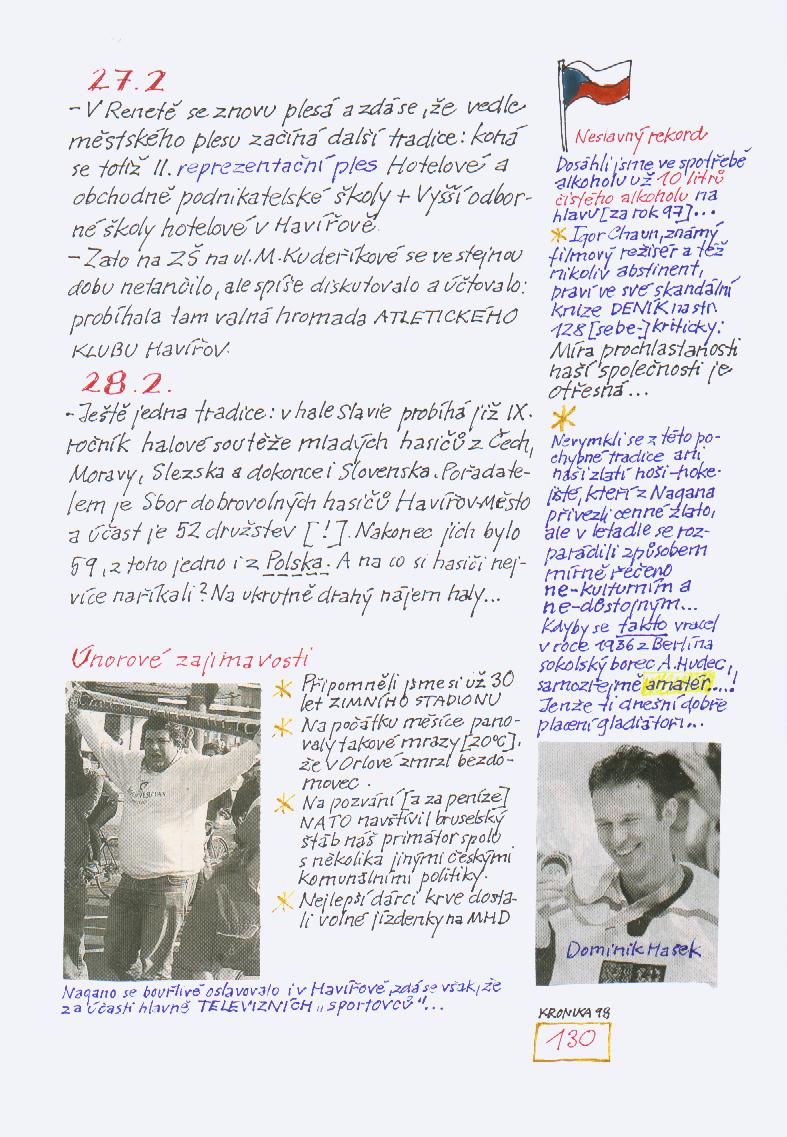 27.2
- V Renetě se znovu plesá a zdá se, že vedle
městského plesu začíná další tradice: koná
se totiž II. reprezentační ples Hotelové a
obchodně podnikatelské školy + Vyšší odbor-
né školy hotelové v Havířově.
- Zato na ZŠ na ul. M. Kudeříkové se ve stejnou
dobu netančilo, ale spíše diskutovalo a účtovalo:
probíhala tam valná hromada ATLETICKÉHO
KLUBU Havířov.
28.2.
- Ještě jedna tradice: v hale Slavie probíhá již IX.
ročník halové soutěže mladých hasičů z Čech,
Moravy, Slezska a dokonce i Slovenska. Pořadate-
lem je Sbor dobrovolných hasičů Havířov-Město
a účast je 52 družstev [!]. Nakonec jich bylo
59, z toho jedno i z Polska. A na co si hasiči nej-
více naříkali? Na ukrutně drahý nájem haly...
Únorové zajímavosti
* Připomněli jsme si už 30
let ZIMNÍHO STADIONU
* Na počátku měsíce pano-
valy takové mrazy [20°C],
že v Orlové zmrzl bezdo-
movec.
* Na pozvání [a za peníze]
NATO navštívil bruselský
štáb náš primátor spolu
s několika jinými českými
komunálními politiky.
* Nejlepší dárci krve dosta-
li volné jízdenky na MHD
Nagano se bouřlivě oslavovalo i v Havířově, zdá se však, že
za účasti hlavně TELEVIZNÍCH „sportovců"...
Neslavný rekord
Dosáhli jsme ve spotřebě
alkoholu už 10 litrů
čistého alkoholu na
hlavu [za rok 97]...
* Igor Chaun, známý
filmový režisér a též
nikoliv abstinent,
praví ve své skandální
knize DENÍK na str.
128 [sebe-] kriticky:
Míra prochlastanosti
naší společnosti je
otřesná...
*
Nevymkli se z této po-
chybné tradice ani
naši zlatí hoši-hoke-
jisté, kteří z Nagana
přivezli cenné zlato,
ale v letadle se roz-
parádili způsobem
mírně řečeno
ne-kulturním a
ne-důstojným...
Kdyby se takto vracel
v roce 1936 z Berlína
sokolský borec A. Hudec,
samozřejmě amatér...!
Jenže ti dnešní dobře
placení gladiátoři...
Dominik Hašek
KRONIKA 98
130